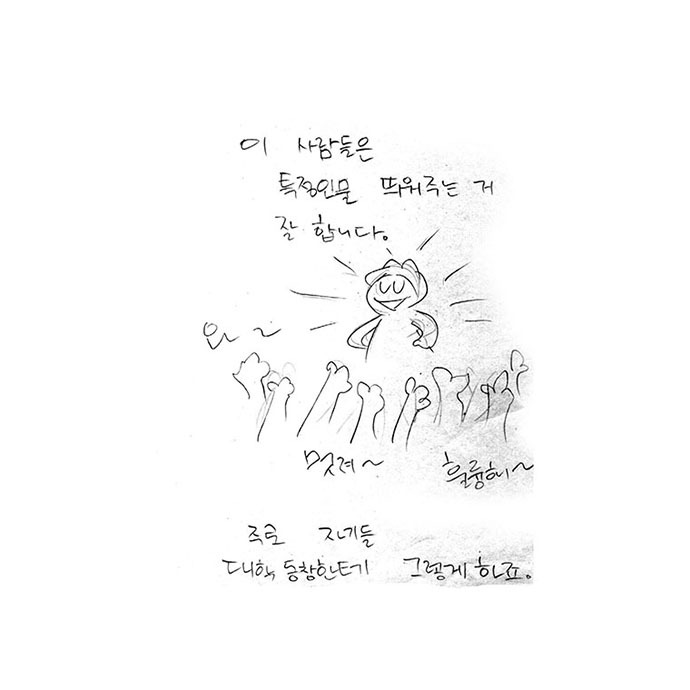 이 사람들은
특정인물 띄워주는 거
잘 합니다.
와~
멋져~
훌륭해~
주로 자기들
대학 동창한테 그렇게 하죠.